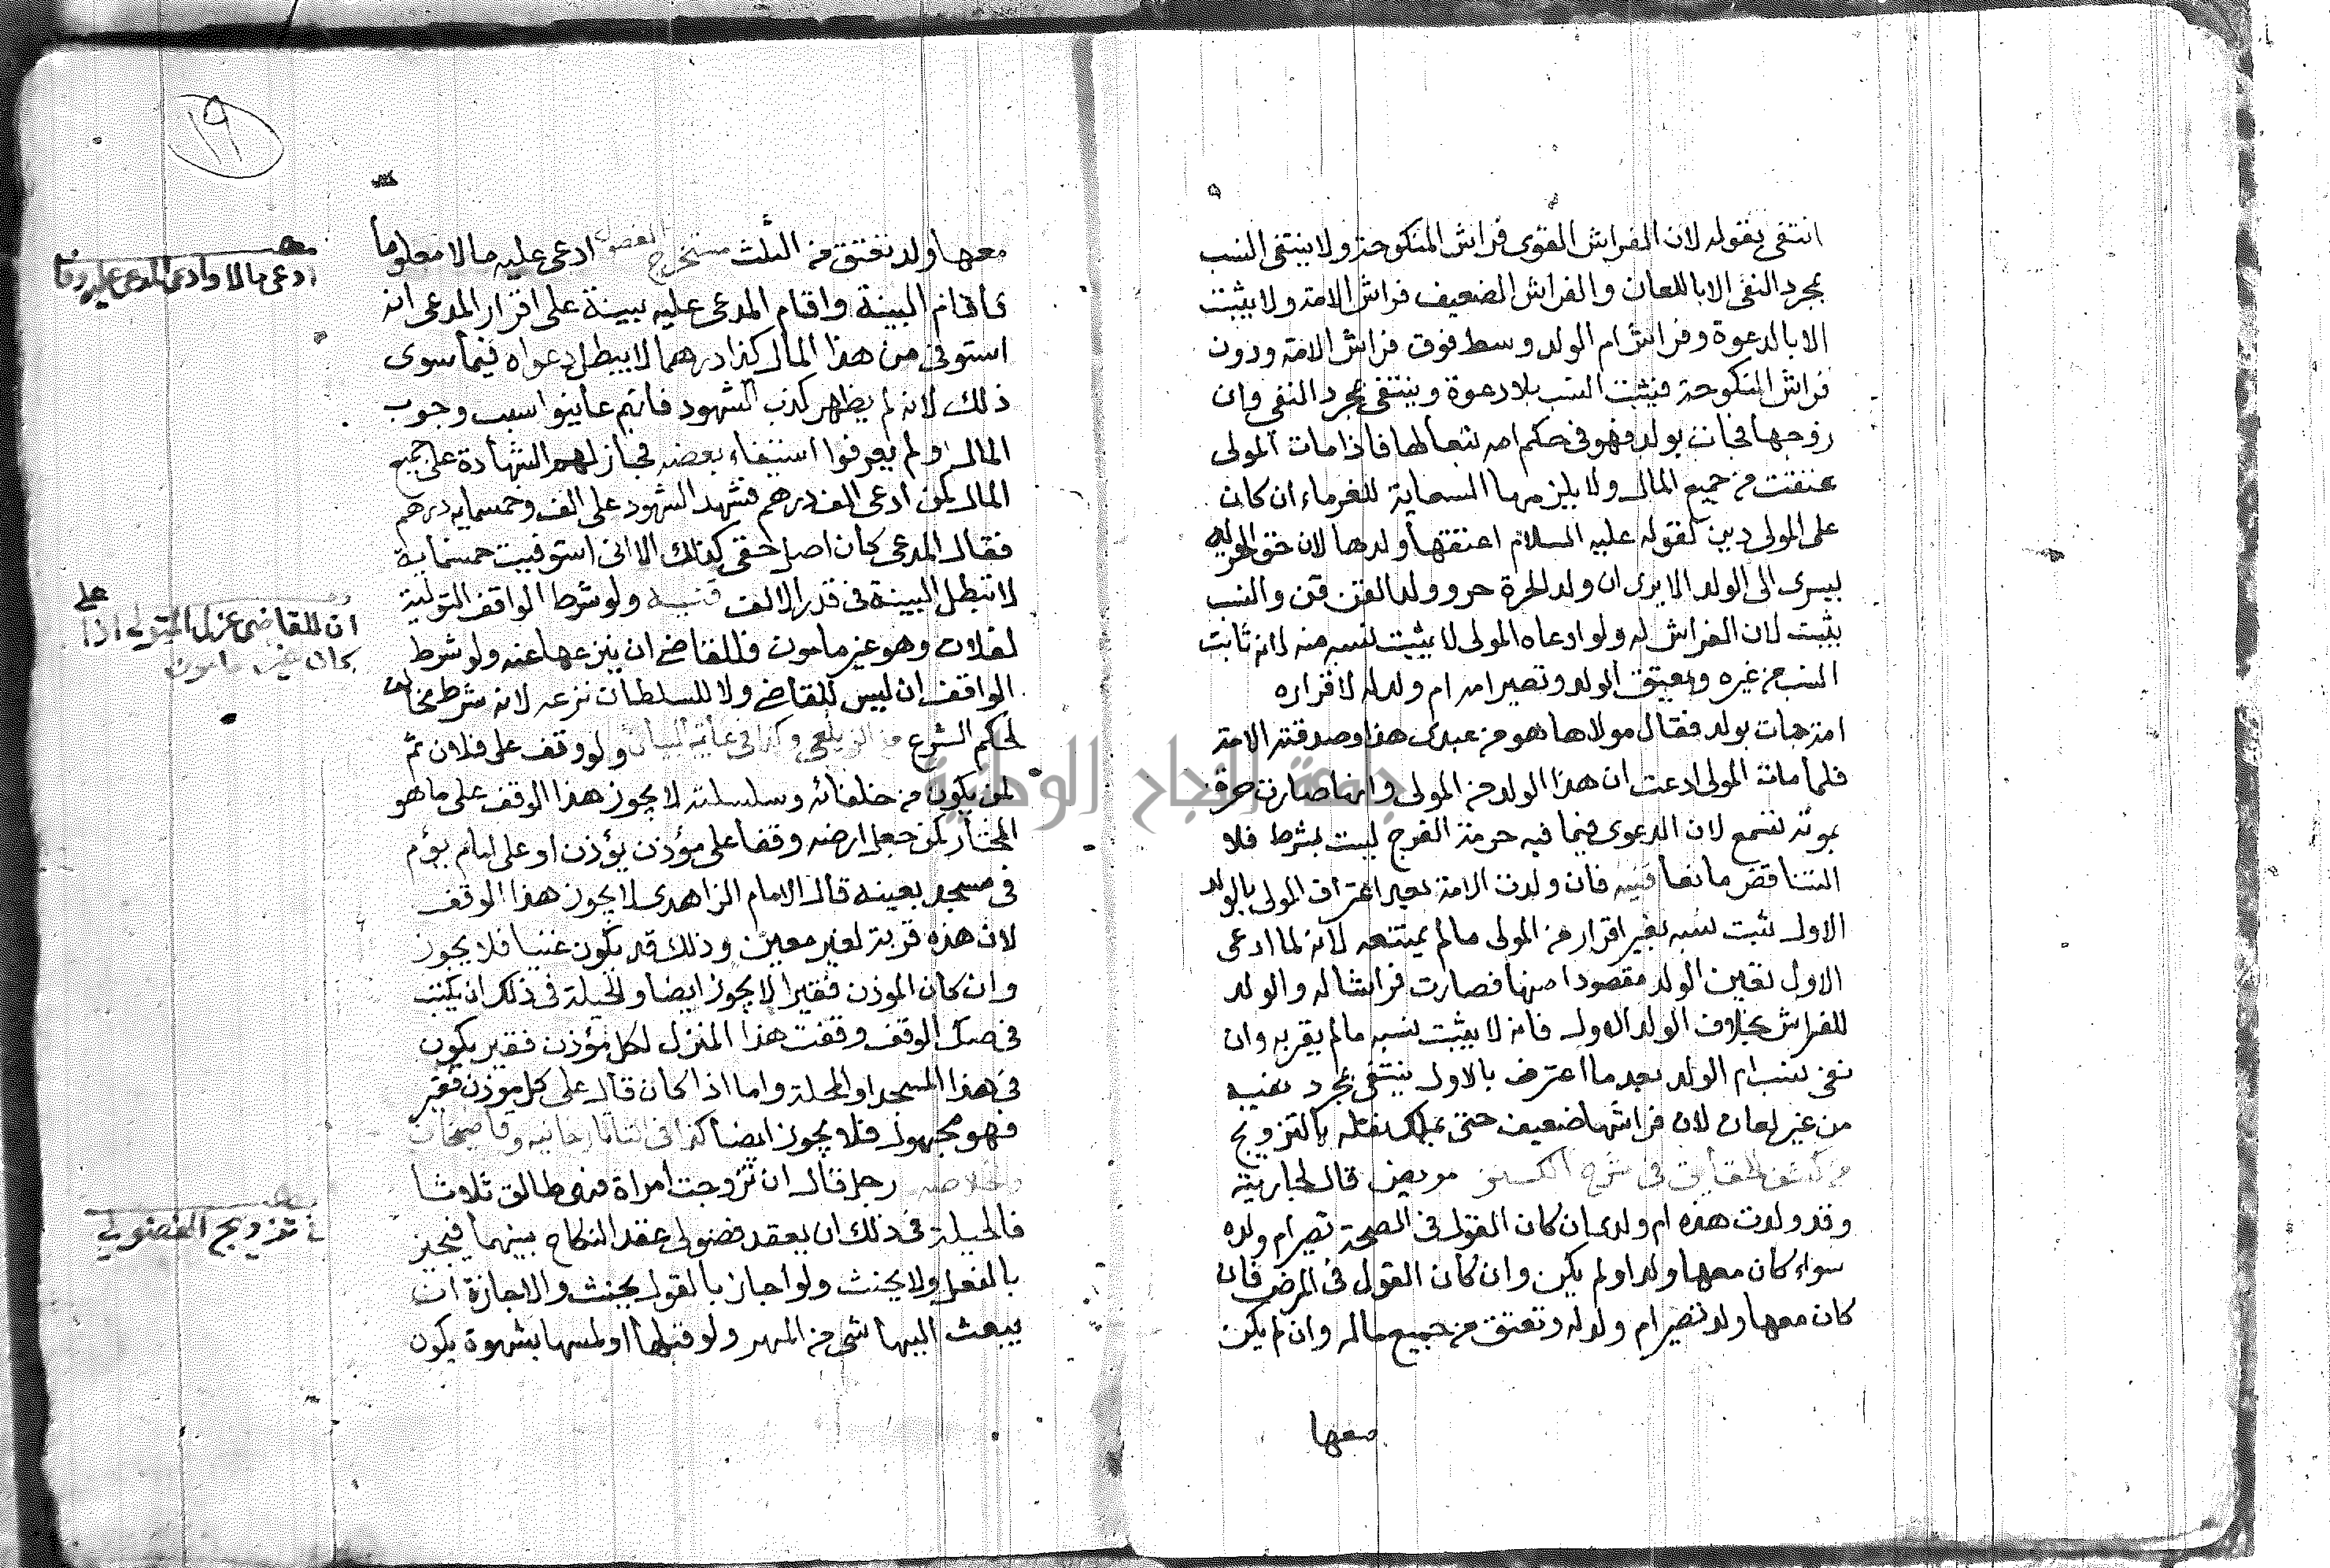 انتفى بقوله لان الفراش القوى فراش المنكوحة ولا ينتفى النسب
بمجرد النفى الا باللعان والفراش الضعيف فراش الامة ولا يثبت
الا بالدعوة وفراش ام الولد وسط فوق فراش الامة ودون
فراش المنكوحة فيثبت النسب بلا دعوة وينتفى بمجرد النفى وان
زوجها فجات بولد فهو فى حكم امه تبعا لها فاذا مات المولى
عتقت من جميع المال ولا يلزمها السعاية للغرماء ان كان
على المولى دين لقوله عليه السلام اعتقها ولدها لان حق الحرية
يسرى الى الولد الا يرى ان ولد الحرة حر وولد القن قن والنسب
يثبت لان الفراش له ولو ادعاه المولى لا يثبت نسبه منه لانه ثابت
النسب من غيره ويعتق الولد وتصير امه ام ولد له لاقراره
امة جات بولد فقال مولاها هو من عبدى هذا وصدقته الامة
فلما مات المولى ادعت ان هذا الولد من المولى وانها صارت حرة
بموته تسمع لان الدعوى فيما فيه حرمة الفرج ليست بشرط فلا
التناقض مانعا فيه فان ولدت الامة بعد اعتراف المولى بالولد
الاول ثبت نسبه بغير اقرار من المولى ما لم يمتنعه لانه لما ادعى
الاول تعين الولد مقصودا منها فصارت فراشا له والولد
للفراش بخلاف الولد الاول فانه لا يثبت نسبه ما لم يقر به وان
نفى نسب ام الولد بعد ما اعترف بالاول ينتفى بمجرد نفيه
من غير لعان لان فراشها ضعيف حتى يملك نقله بالتزويج
من كشف الحقايق فى شرح الكنز مريض قال لجاريته
وقد ولدت هذه ام ولدى ان كان القول فى الصحة تصير ام ولده
سواء كان معها ولد او لم يكن وان كان القول فى المرض فان
كان معها ولد تصير ام ولد له وتعتق من جميع ماله وان لم يكن
معها
١٩
معها ولد تعتق من الثلث مستخرج الفصول ادعى عليه مالا معلوما
فاقام البينة واقام المدعى عليه بينة على اقرار المدعى انه
استوفى من هذا المال كذا درهما لا يبطل دعواه فيما سوى
ذلك لانه لم يظهر كذب الشهود فانهم عاينوا سبب وجوب
المال ولم يعرفوا استيفاء بعضه فجاز لهم الشهادة على جميع
المال كمن ادعى الف درهم فشهد الشهود على الف وخمسمايه درهم
فقال المدعى كان اصل حقى كذلك الا انى استوفيت خمسماية
لا تبطل البينة فى قدر الالف قنيه ولو شرط الواقف التولية
لفلان وهو غير مامون فللقاضى ان ينزعها عنه ولو شرط
الواقف ان ليس للقاضى ولا للسلطان نزعه لانه شرط مخالف
لحكم الشرع من الزيلعى وكذا فى غاية البيان ولو وقف على فلان ثم
لمن يكون من خلفائه وسلسلته لا يجوز هذا الوقف على ما هو
المختار كمن جعل ارضه وقفا على مؤذن يؤذن او على امام يؤم
فى مسجد بعينه قال الامام الزاهدى لا يجوز هذا الوقف
لان هذه قربة لغير معين وذلك قد يكون غنيا فلا يجوز
وان كان الموذن فقيرا لا يجوز ايضا والحيلة فى ذلك ان يكتب
فى صك الوقف وقفت هذا المنزل لكل مؤذن فقير يكون
فى هذا المسجد او المحلة واما اذا كان قال على كل موذن فقير
فهو مجهول فلا يجوز ايضا كذا فى التاتارخانيه وقاضيخان
والخلاصه رجل قال ان تزوجت امراة فهى طالق ثلاوثا
فالحيلة فى ذلك ان يعقد فضولى عقد النكاح بينهما فيجيز
بالفعل ولا يحنث ولو اجاز بالقول يحنث والاجازة ان
يبعث اليها شى من المهر ولو قبلها او لمسها بشهوة يكون
ادعى مالا وادعى المدعى عليه
على
ان للقاضى عزل المتولى اذا
كان غير مامون
فى تزويج الفضولى
جامعة النجاح الوطنية